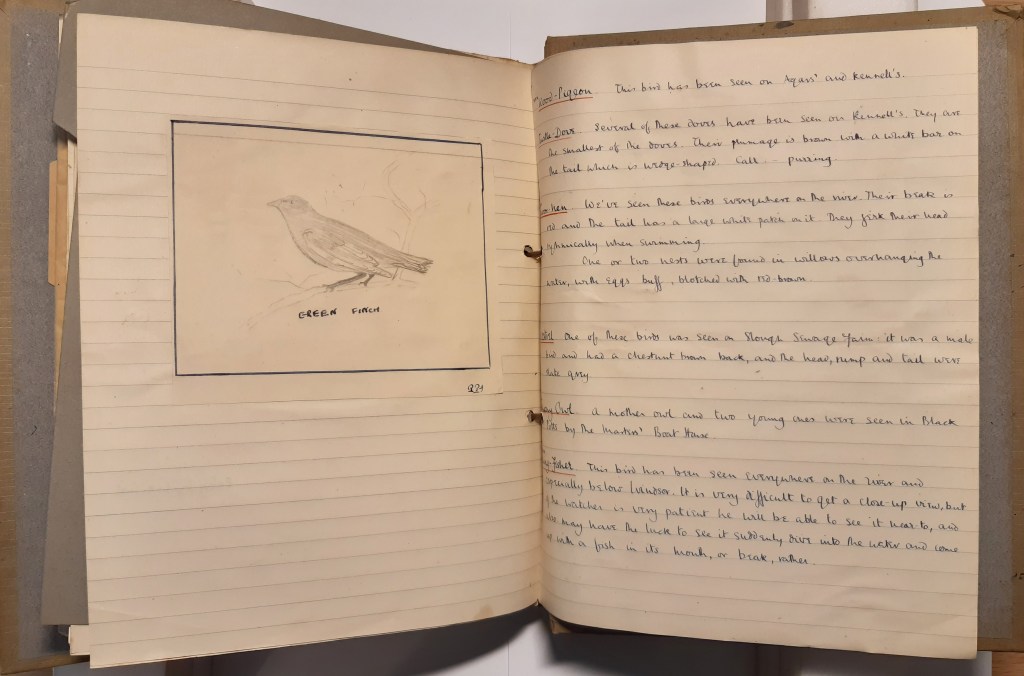 GREEN FINCH
Wood-Pigeon. This bird has been seen on Agars' and Kennell's.
Turtle-Dove. Several of these doves have been seen on Kennell's. They are
the smallest of the doves. Their plumage is brown with a white bar on
the tail which is wedge-shaped. Call - purring.
hen. We've seen these birds everywhere on the river. Their beak is
red and the tail has a large white patch on it. They jerk their head
rythmically when swimming.
One or two nests were found in willows overhanging the
water, with eggs buff, blotched with red-brown.
One of these birds was seen on Slough Sewage Farm: it was a male
bird and had a chestnut brown back, and the head, rump and tail were
slate grey.
Owl. A mother owl and two young ones were seen in Black
Potts by the Masters' Boat House.
Fisher. This bird has been seen everywhere on the river and
especially below Windsor. It is very difficult to get a close-up view, but
if the watcher is very patient he will be able to see it near-to, and
also may have the luck to see it suddenly dive into the water and come
up with a fish in its mouth, or beak, rather.